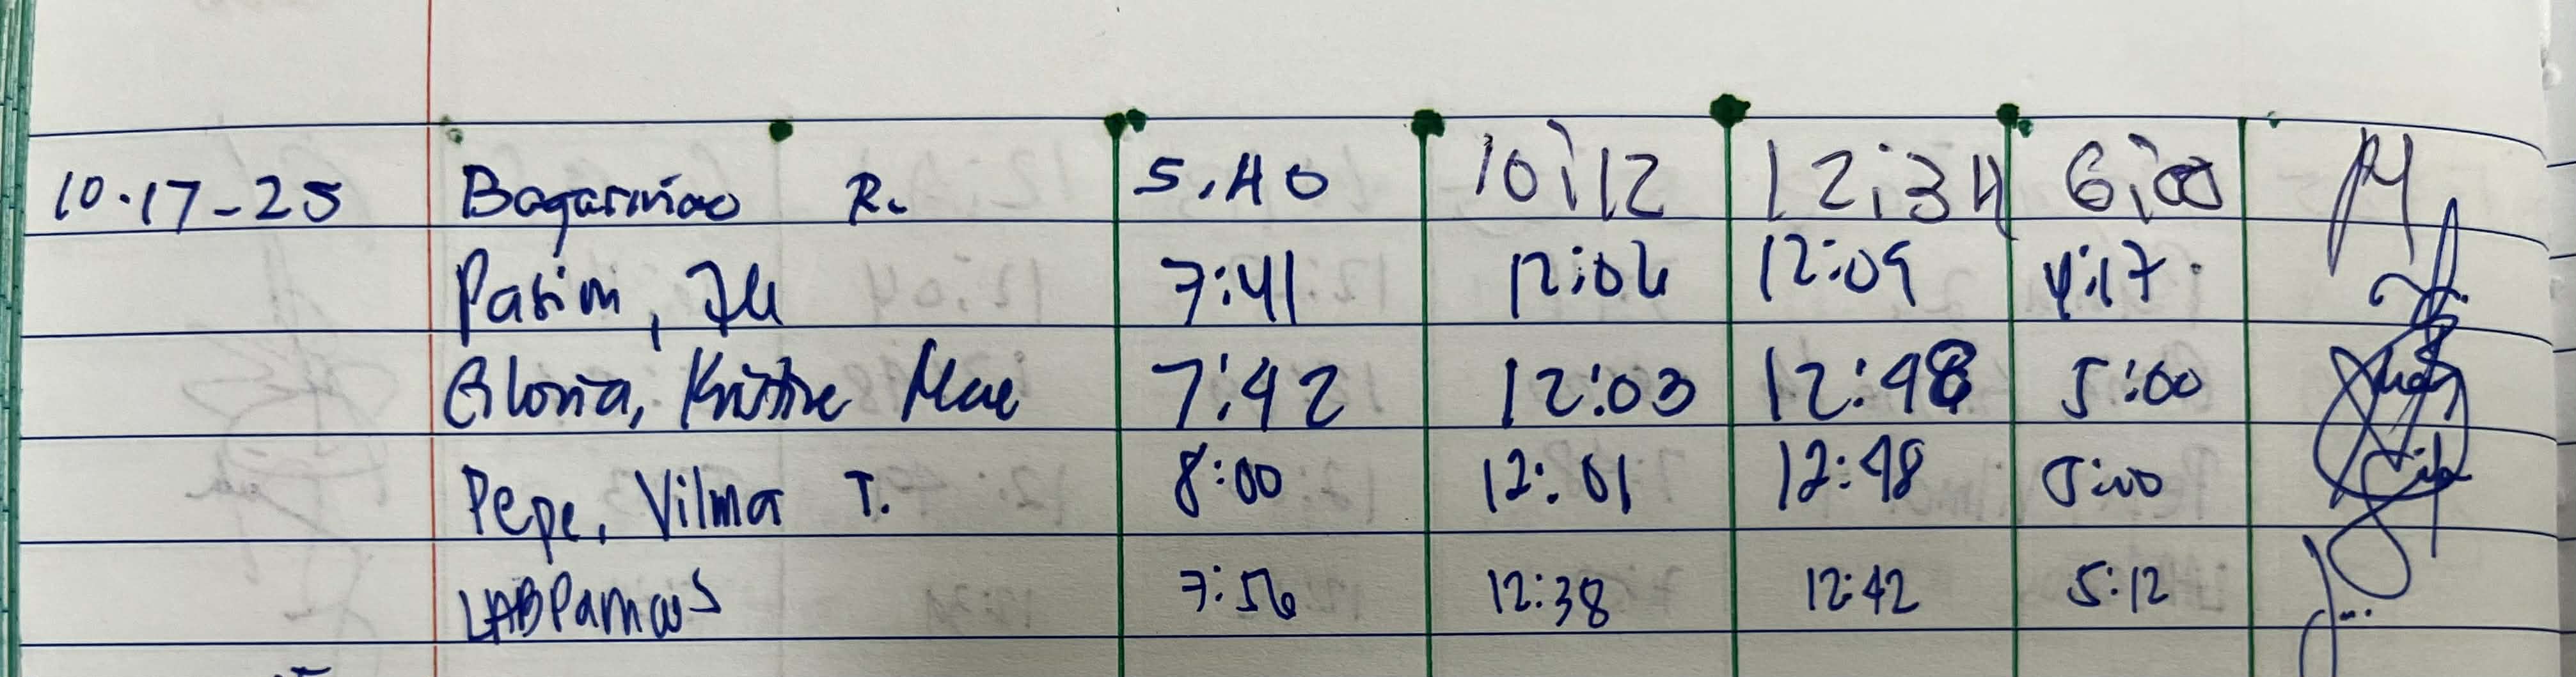 10.17-25 Bagarinao R. 5.40 10:12 12:34 6:00
Pasion, 7:41 12:06 12:09 4:17
Gloria, Kristine Mae 7:42 12:03 12:48 5:00
Pepe, Vilma T. 8:00 12:01 12:48 5:00
LAB 7:56 12:38 12:42 5:12